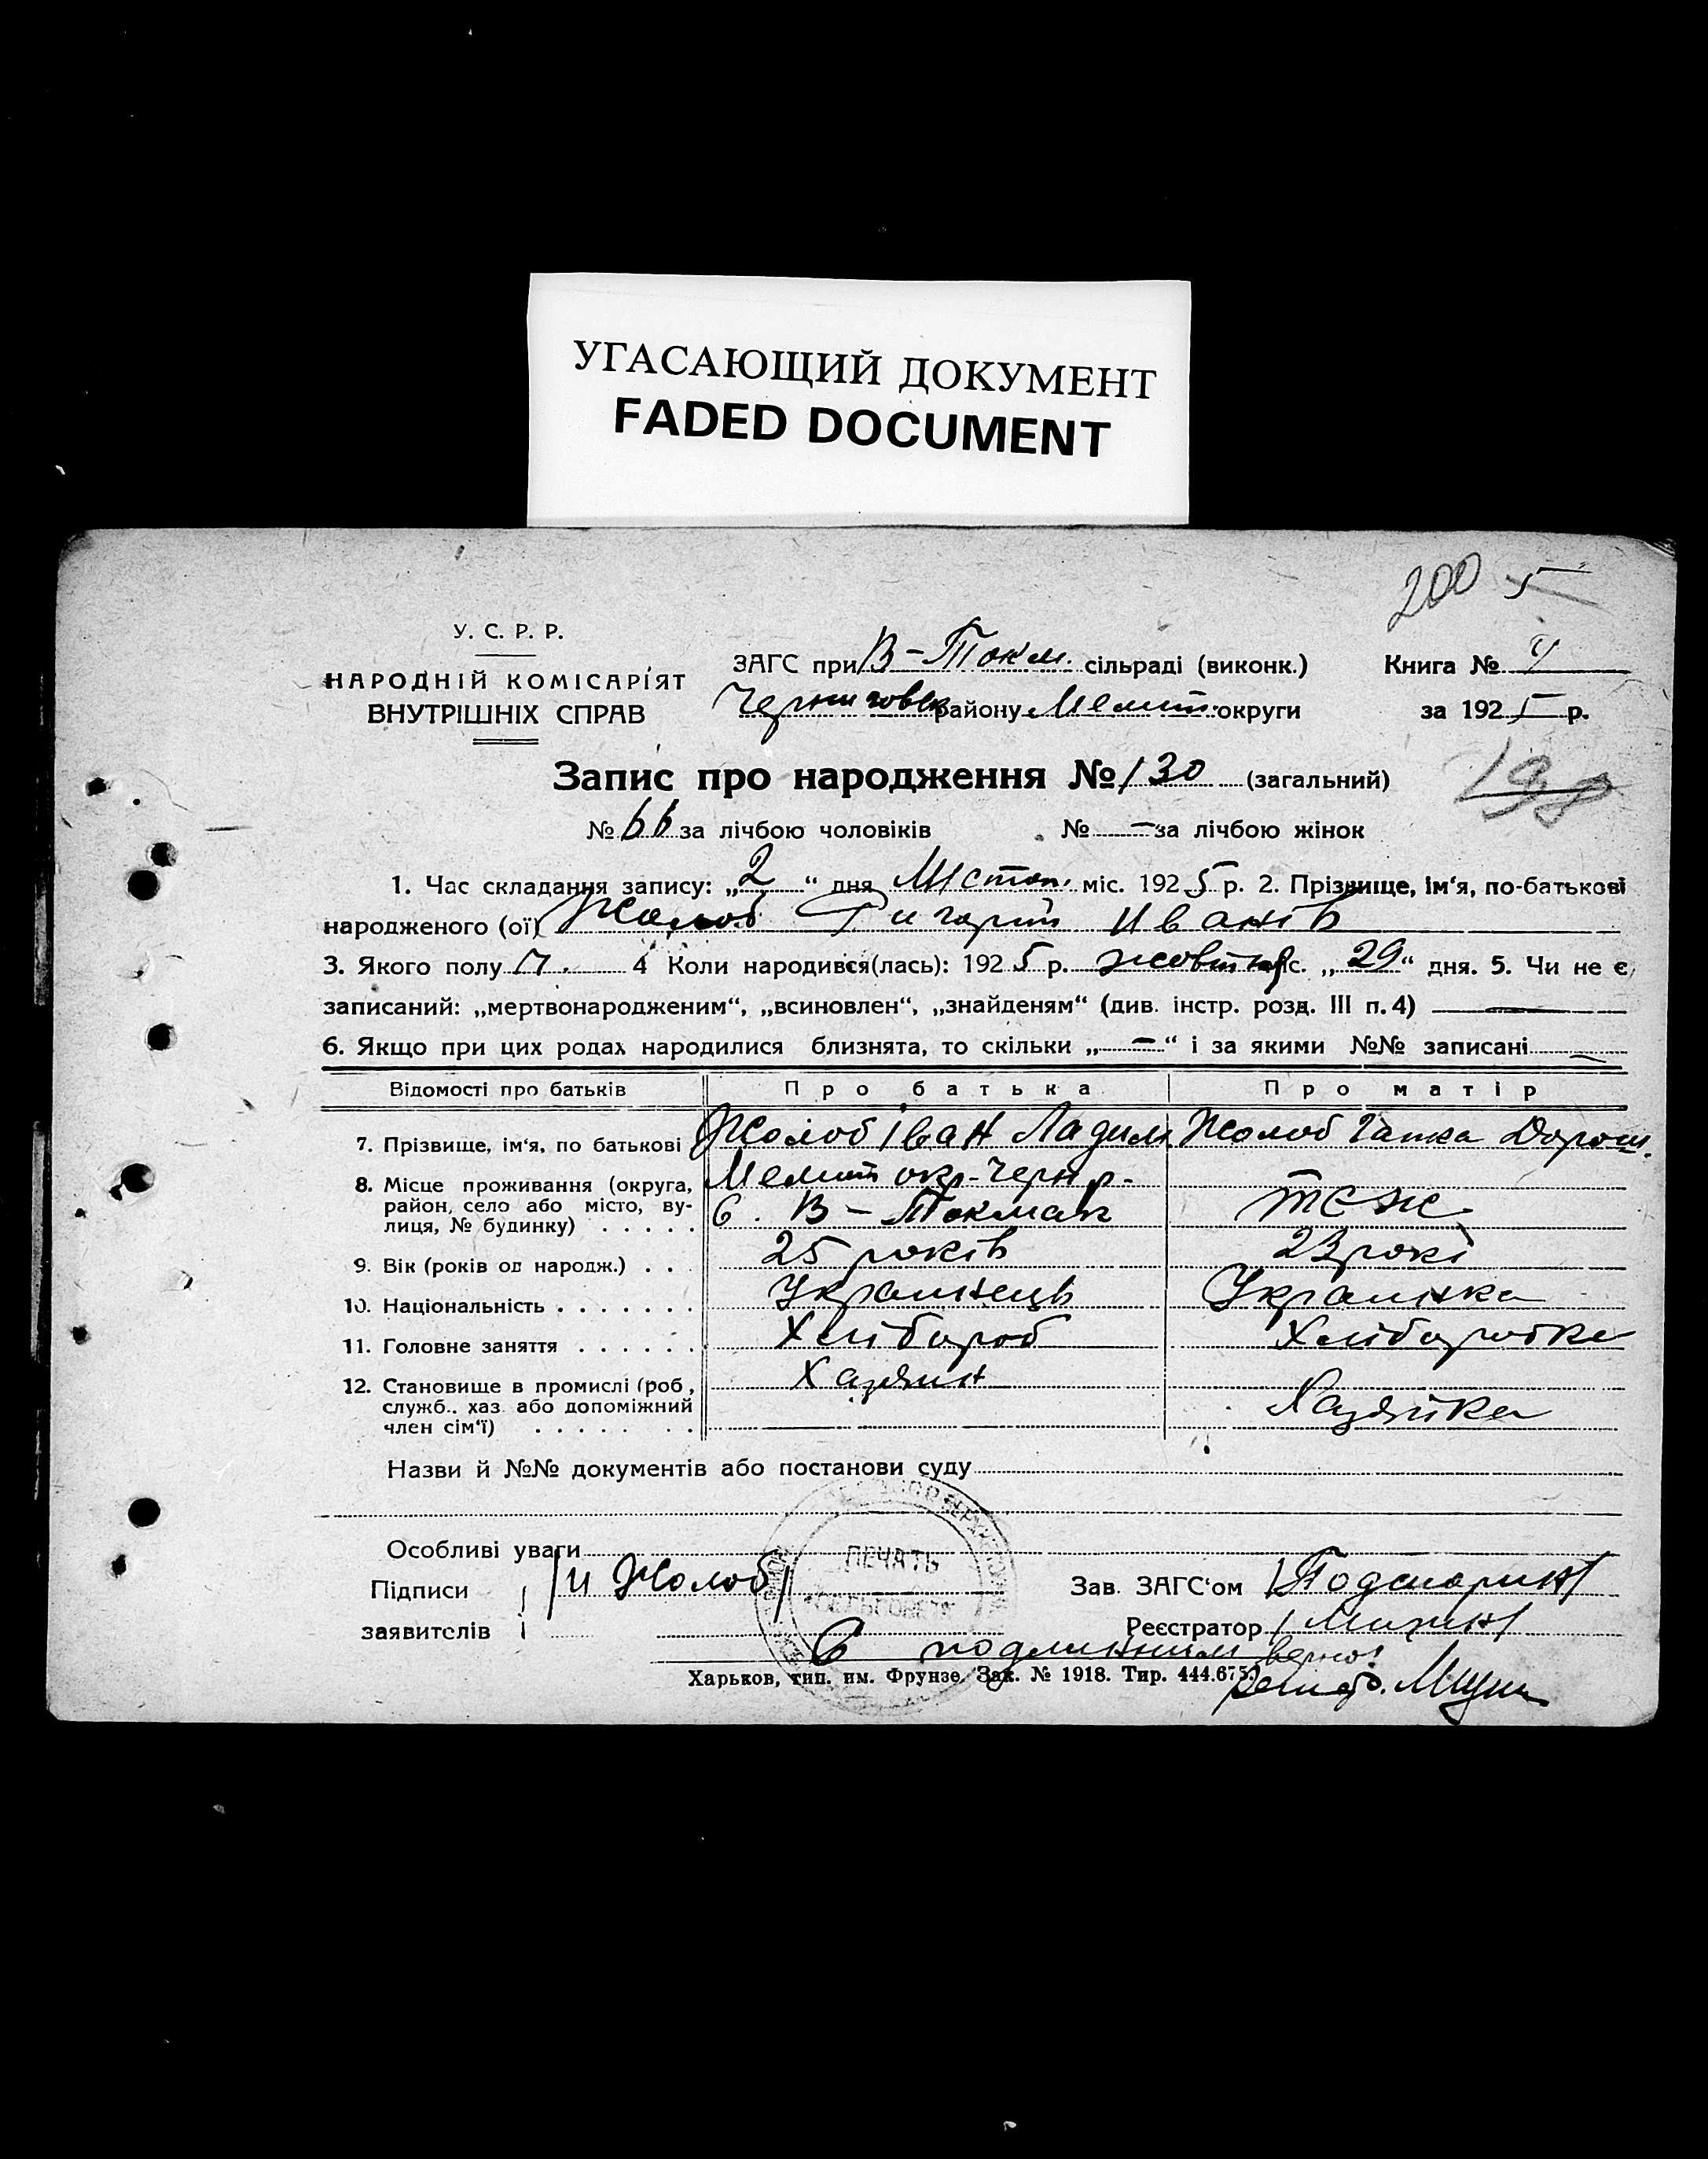 УГАСАЮЩИЙ ДОКУМЕНТ
FADED DOCUMENT
200 5
У. С. Р. Р.
НАРОДНІЙ КОМІСАРІЯТ
ВНУТРІШНІХ СПРАВ
ЗАГС при В-Токм. сільраді (виконк.)
Книга №
Черниговск району Мелит. округи
за 1925 р.
Запис про народження № 130 (загальний)
198
№ 66 за лічбою чоловіків № — за лічбою жінок
1. Час складання запису: „2“ дня Листоп. міс. 1925 р. 2. Прізвище, ім'я, по-батькові
народженого (ої) Жолоб Григорій Иванів
3. Якого полу 4 Коли народився(лась): 1925 р. жовтня с. „29“ дня. 5. Чи не є
записаний: „мертвонародженим“, „всиновлен“, „знайденям“ (див. інстр. розд. III п. 4) —
6. Якщо при цих родах народилися близнята, то скільки „—“ і за якими №№ записані —
Відомості про батьків Про батька Про матір
7. Прізвище, ім'я, по батькові Жолоб Іван Жолоб Гапка Дорош.
8. Місце проживання (округа, Мелит окр. Черн р.
район, село або місто, ву- с. В-Токмак теж
лиця, № будинку) . . . .
9. Вік (років од народж.) . . . 25 років 23 рокі
10. Національність . . . . . . . Украінець Украінка
11. Головне заняття . . . . . . Хлібороб Хлiборобка
12. Становище в промислі (роб, Хазяин
служб., хаз. або допоміжний Хазяйка
член сім'ї) . . . . . . .
Назви й №№ документів або постанови суду
Особливі уваги
ПЕЧАТЬ
Підписи /И Жолоб/ Зав. ЗАГС'ом
заявителів Реєстратор
С подлинним верно:
Харьков, тип. им. Фрунзе. Зак. № 1918. Тир. 444.675.